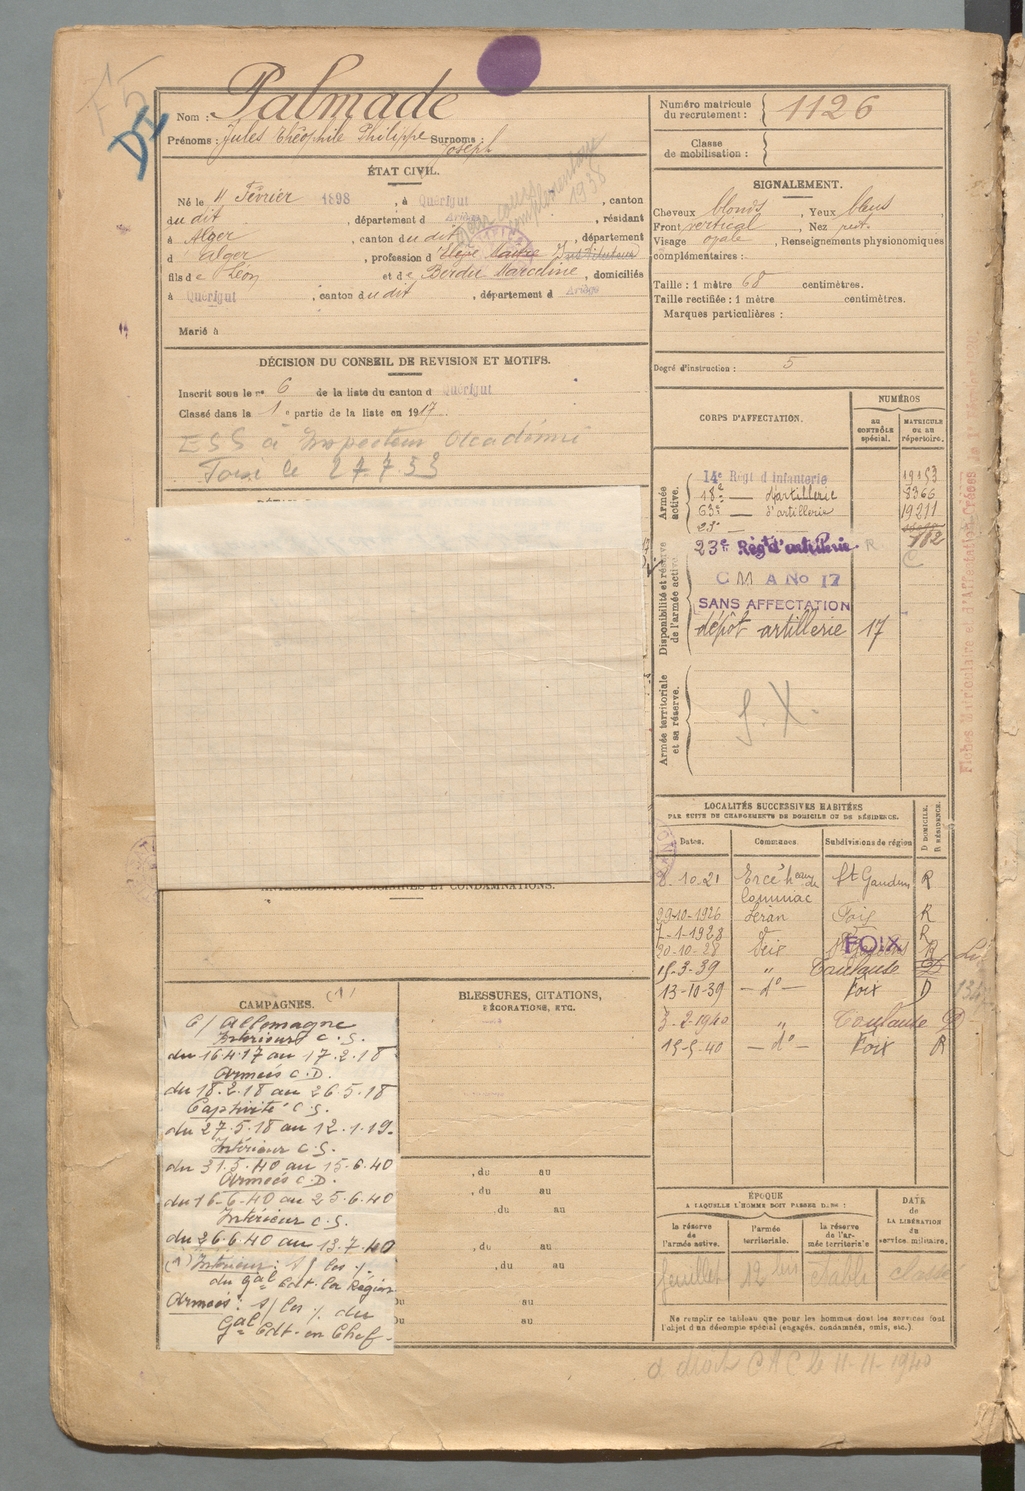 Nom : Palmade
Prénoms : Jules Théophile Philippe Surnoms :
Joseph
Numéro matricule
du recrutement : 1126
Classe
de mobilisation :
ÉTAT CIVIL.
Né le 11 Février 1898, à Quérigut, canton
du dit, département d Ariège, résidant
à Alger, canton du dit, département
d Alger, profession d' Maitre Instituteur
fils de Léon et de Berdu Marceline, domiciliés
à Quérigut, canton du dit, département d Ariège
Marié à
complémentaire
1938
SIGNALEMENT.
Cheveux blonds, Yeux bleus,
Front vertical, Nez rect.
Visage ovale, Renseignements physionomiques
complémentaires :
Taille : 1 mètre 68 centimètres.
Taille rectifiée : 1 mètre centimètres.
Marques particulières :
Degré d'instruction : 5
DÉCISION DU CONSEIL DE REVISION ET MOTIFS.
Inscrit sous le n° 6 de la liste du canton d Quérigut
Classé dans la 1e partie de la liste en 1917.
ESS à Inspecteur Académie
le 27.7.53
CORPS D'AFFECTATION.
NUMÉROS
AU CONTRÔLE spécial.
MATRICULE OU AU répertoire.
Armée active.
14e Régt d'Infanterie 19153
18e — d'artillerie 8366
63e — d'artillerie 19211
23e Régt d'artillerie R. 782
C
Disponibilité et réserve de l'armée active.
C M A No 17
SANS AFFECTATION
dépôt artillerie 17
Armée territoriale et sa réserve.
S. X.
LOCALITÉS SUCCESSIVES HABITÉES
PAR SUITE DE CHANGEMENTS DE DOMICILE OU DE RÉSIDENCE.
Dates. Communes. Subdivisions de région D DOMICILE. R RÉSIDENCE.
8.10.21 Ercé heau de Cominac St Gaudens R
29-10-1926 Léran Foix R
7-1-1928 R
20-10-28 FOIX R
15-3-39 " Toulouse D
13-10-39 — d° — Foix D
3-2-1940 " Toulouse D
15-5-40 — d° — Foix R
ANTÉCÉDENTS JUDICIAIRES ET CONDAMNATIONS.
CAMPAGNES. (1)
C/ Allemagne
Intérieur C.S.
du 16.4.17 au 17.2.18
Armées C.D.
du 18.2.18 au 26.5.18
Captivité C.S.
du 27.5.18 au 12.1.19.
Intérieur C.S.
du 31.5.40 au 15.6.40
Armées C.D.
du 16-6-40 au 25.6.40
Intérieur C.S.
du 26.6.40 au 13.7.40
(1) Intérieur : s/ les %
du Gal Cdt. la Région
Armées : s/ les % du
Gal Cdt. en Chef -
BLESSURES, CITATIONS,
DÉCORATIONS, ETC.
, du au
, du au
, du au
, du au
, du au
Du au
Du au
ÉPOQUE
A LAQUELLE L'HOMME DOIT PASSER DANS :
la réserve de l'armée active.
l'armée territoriale.
la réserve de l'armée territoriale
DATE de LA LIBÉRATION du service militaire.
feuillet 12 bis établi classé
Ne remplir ce tableau que pour les hommes dont les services font
l'objet d'un décompte spécial (engagés, condamnés, omis, etc.).
a droit CAC le 11-11-1940